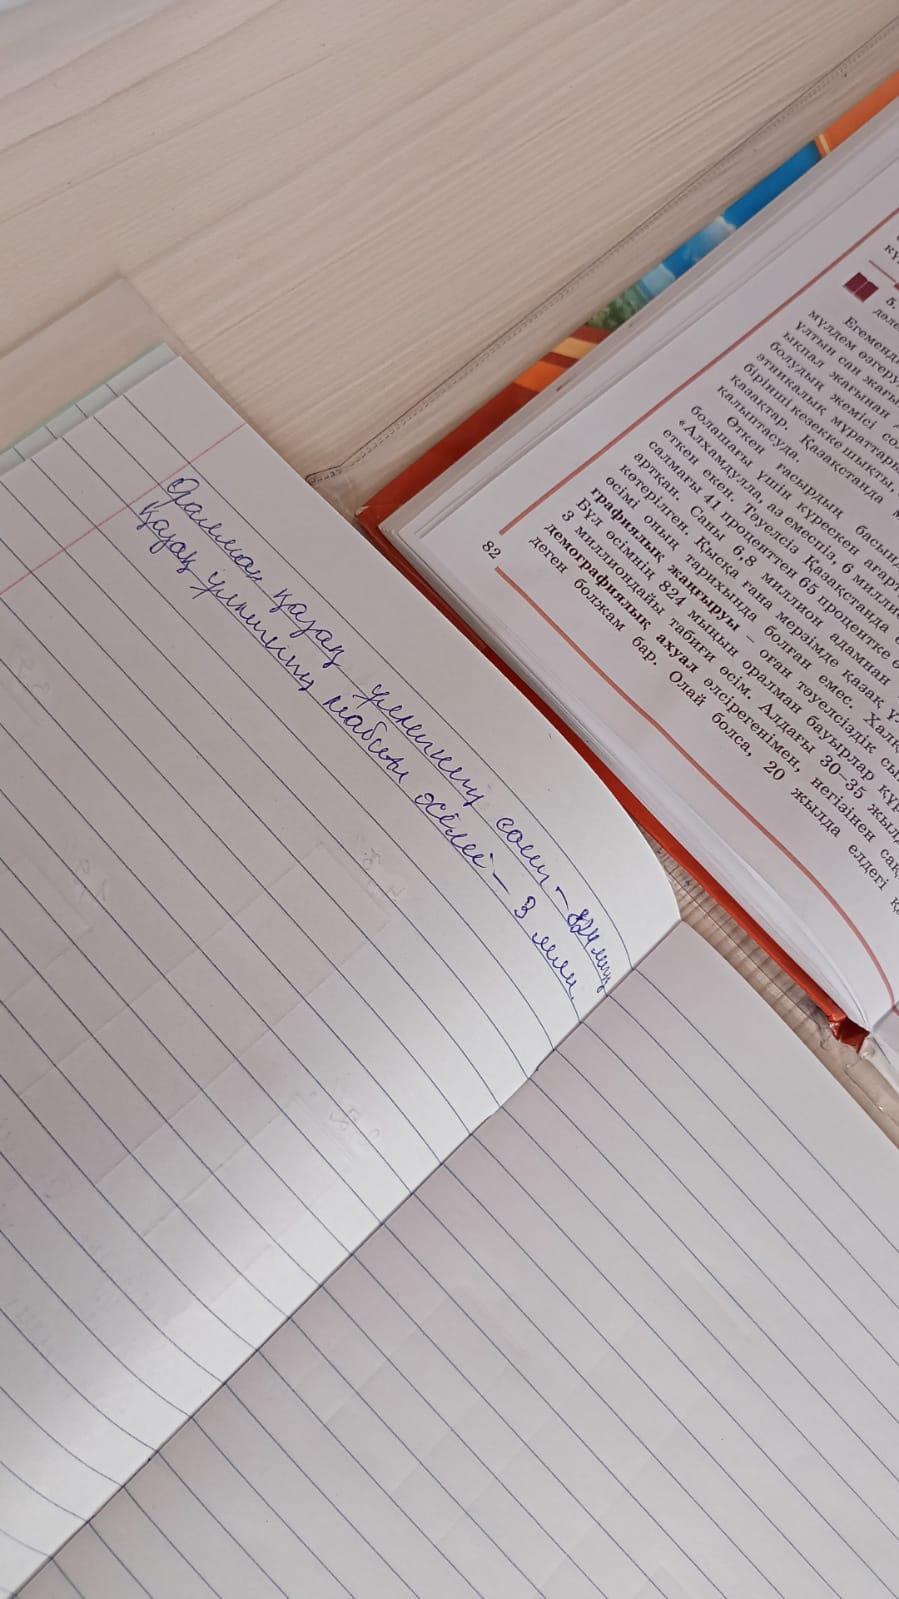 Оралман қазақ ұлтының саны – 824 мың
Қазақ ұлтының табиғи өсімі – 3 млн.
82
5.
Егеменді
мүлдем өзгеру
ұлтын сан жағы
ықпал жағынан
болудың жемісі
этникалық мұраттары
бірінші кезекке шықты,
қазақтар. Қазақстанда
қалыптасуда.
Өткен ғасырдың басынд
болашағы үшін күрескен ағарт
«Алхамдулла, аз емеспіз, 6 милли
еткен екен. Тәуелсіз Қазақстанда
салмағы 41 проценттен 65 процентке
артқан. Саны 6,8 миллион адамнан
көтерілген. Қысқа ғана мерзімде қазақ ұ
өсімі оның тарихында болған емес. Халқ
графиялық жаңғыруы – оған тәуелсіздік сы
Бұл өсімнің 824 мыңын оралман бауырлар құр
3 миллиондайы табиғи өсім. Алдағы 30–35 жыл
демографиялық ахуал әлсірегенімен, негізінен сақ
деген болжам бар. Олай болса, 20 жылда елдегі қ